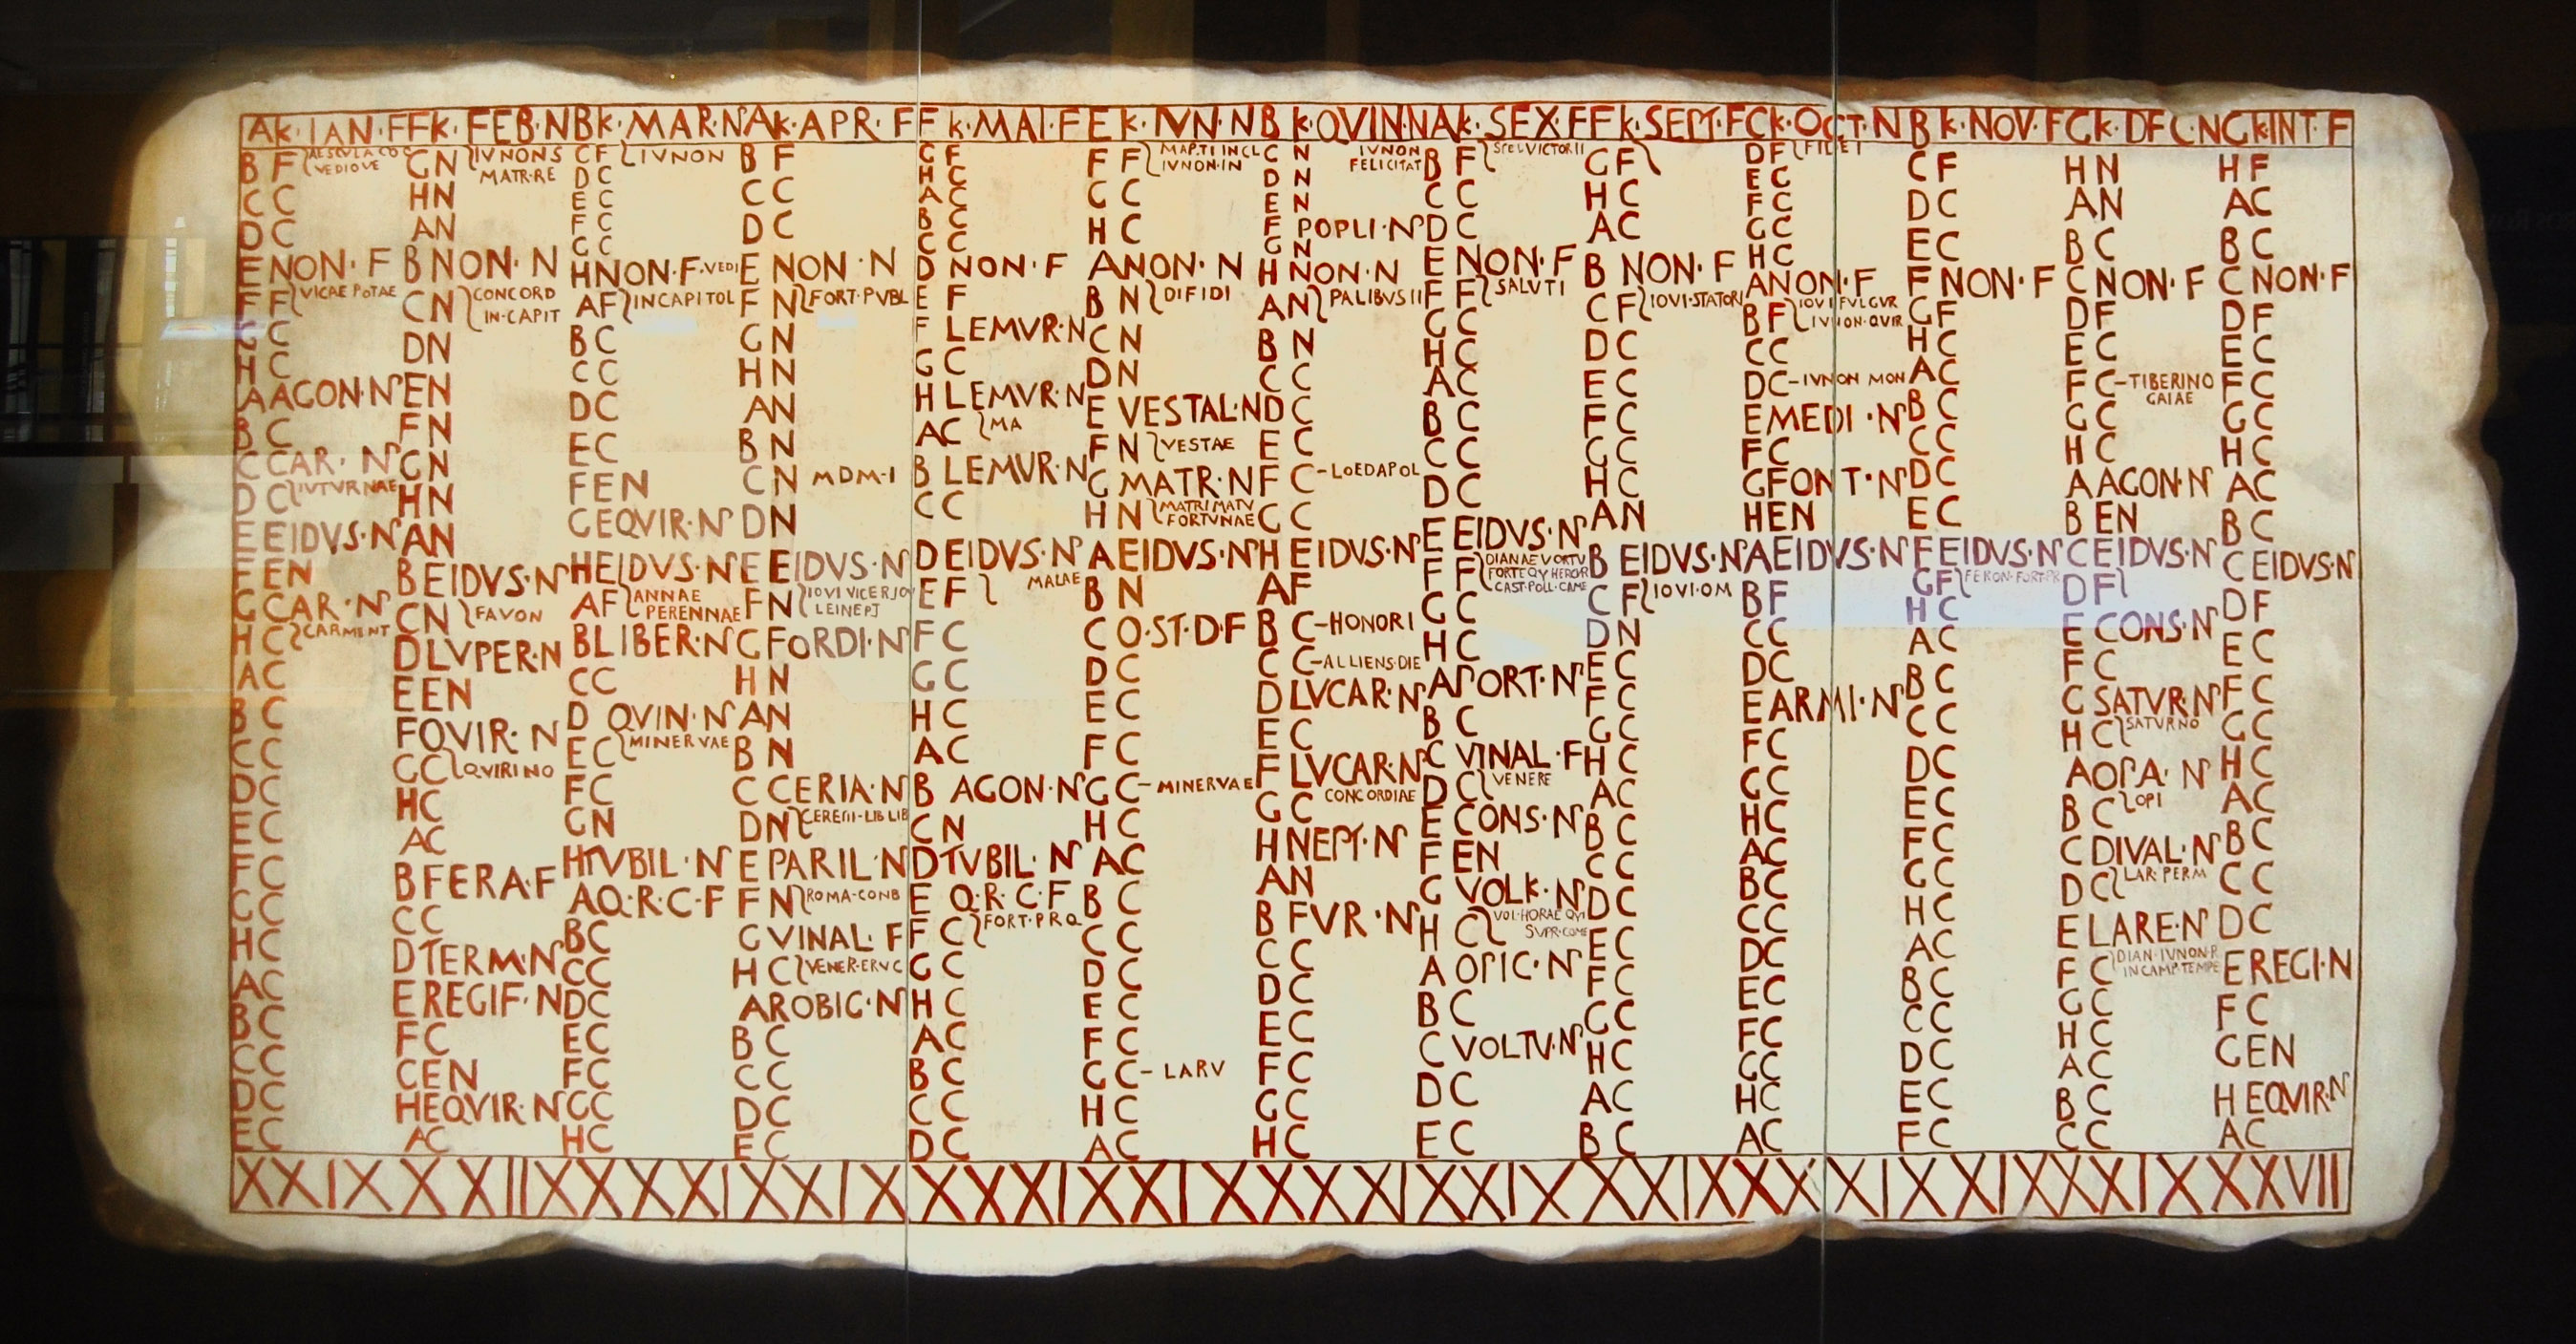 AK·IAN·F FK·FEB·N BK·MAR·N AK·APR·F FK·MAI·F EK·IVN·N BK·QVIN·N AK·SEX·F FK·SEPT·F CK·OCT·N BK·NOV·F GK·DEC·N GK·INT·F
B F
VEDIOVE
C C
D C
E NON·F
F F VICAE POTAE
G C
H C
A AGON·N
B C
C CAR·N
D C IVTVRNAE
E EIDVS·N
F EN
G CAR·N
H C CARMENT
A C
B C
C C
D C
E C
F C
G C
H C
A C
B C
C C
D C
E C
G N IVNONS
MATR·RE
H N
A N
B NON·N
C N CONCORD
IN·CAPIT
D N
E N
F N
G N
H N
A N
B EIDVS·N
C N FAVON
D LVPER·N
E EN
F QVIR·N
G C QVIRINO
H C
A C
B FERA·F
C C
D TERM·N
E REGIF·N
F C
G EN
H EQVIR·N
A C
C F IVNON
D C
E C
F C
G C
H NON·F·VEDI
A F IN CAPITOL
B C
C C
D C
E C
F EN
G EQVIR·N
H EIDVS·N
A F ANNAE
PERENNAE
B LIBER·N
C C
D QVIN·N
E C MINERVAE
F C
G N
H TVBIL·N
A Q·R·C·F
B C
C C
D C
E C
F C
G C
H C
B F
C C
D C
E NON·N
F N FORT·PVBL
G N
H N
A N
B N
C N MDM·I
D N
E EIDVS·N
F N IOVI VICE
LEINEPI
G FORDI·N
H N
A N
B N
C CERIA·N
D N LIB LIB
E PARIL·N
F N ROMA·COND
G VINAL·F
H C VENER·ERVC
A ROBIG·N
B C
C C
D C
E C
G F
H C
A C
B C
C C
D NON·F
E F
F LEMVR·N
G C
H LEMVR·N
A C MA
B LEMVR·N
C C
D EIDVS·N
E F MAIAE
F C
G C
H C
A C
B AGON·N
C N
D TVBIL·N
E Q·R·C·F
F C FORT·PR·Q
G C
H C
A C
B C
C C
D C
F F
IVNON·IN
G C
H C
A NON·N
B N DIFIDI
C N
D N
E VESTAL·N
F N VESTAE
G MATR·N
H N MATRI MATV
FORTVNAE
A EIDVS·N
B N
C Q·ST·D·F
D C
E C
F C
G C—MINERVAE
H C
A C
B C
C C
D C
E C
F C
G C—LARV
H C
A C
C N IVNON
FELICITAT
D N
E N
F POPLI·N
G N
H NON·N
A N PALIBVS II
B N
C C
D C
E C
F C—LOEDAPOL
G C
H EIDVS·N
A F
B C—HONORI
C C—ALLIENS·DIE
D LVCAR·N
E C
F LVCAR·N
G C CONCORDIAE
H NEPT·N
A N
B FVR·N
C C
D C
E C
F C
G C
H C
B F
C C
D C
E NON·F
F F SALVTI
G C
H C
A C
B C
C C
D C
E EIDVS·N
F F DIANAE VORTV
CAST·POLL·CAME
G C
H C
A PORT·N
B C
C VINAL·F
D C VENERE
E CONS·N
F EN
G VOLK·N
H C VOL·HORAE QVI
SVPR·COME
A OPIC·N
B C
C VOLTV·N
D C
E C
G F
H C
A C
B NON·F
C F IOVI·STATORI
D C
E C
F C
G C
H C
A N
B EIDVS·N
C F IOVI·OM
D N
E C
F C
G C
H C
A C
B C
C C
D C
E C
F C
G C
H C
A C
B C
D F FIDEI
E C
F C
G C
H C
A NON·F
B F IOVI FVLGVR
IVNON·QVIR
C C
D C—IVNON MON
E MEDI·N
F C
G FONT·N
H EN
A EIDVS·N
B F
C C
D C
E ARMI·N
F C
G C
H C
A C
B C
C C
D C
E C
F C
G C
H C
A C
C F
D C
E C
F NON·F
G F
H C
A C
B C
C C
D C
E C
F EIDVS·N
G F FERON·FORT·PR
H C
A C
B C
C C
D C
E C
F C
G C
H C
A C
B C
C C
D C
E C
F C
H N
A N
B C
C NON·F
D F
E C
F C—TIBERINO
GAIAE
G C
H C
A AGON·N
B EN
C EIDVS·N
D F
E CONS·N
F C
G SATVR·N
H C SATVRNO
A OPA·N
B C OPI
C DIVAL·N
D C LAR·PERM
E LARE·N
F C DIAN·IVNON·R
IN CAMP·TEMPE
G C
H C
A C
B C
C C
H F
A C
B C
C NON·F
D F
E C
F C
G C
H C
A C
B C
C EIDVS·N
D F
E C
F C
G C
H C
A C
B C
C C
D C
E REGI·N
F C
G EN
H EQVIR·N
A C
XXIX XXIIX XXXI XXIX XXXI XXIX XXXI XXIX XXIX XXXI XXIX XXIX XXVII